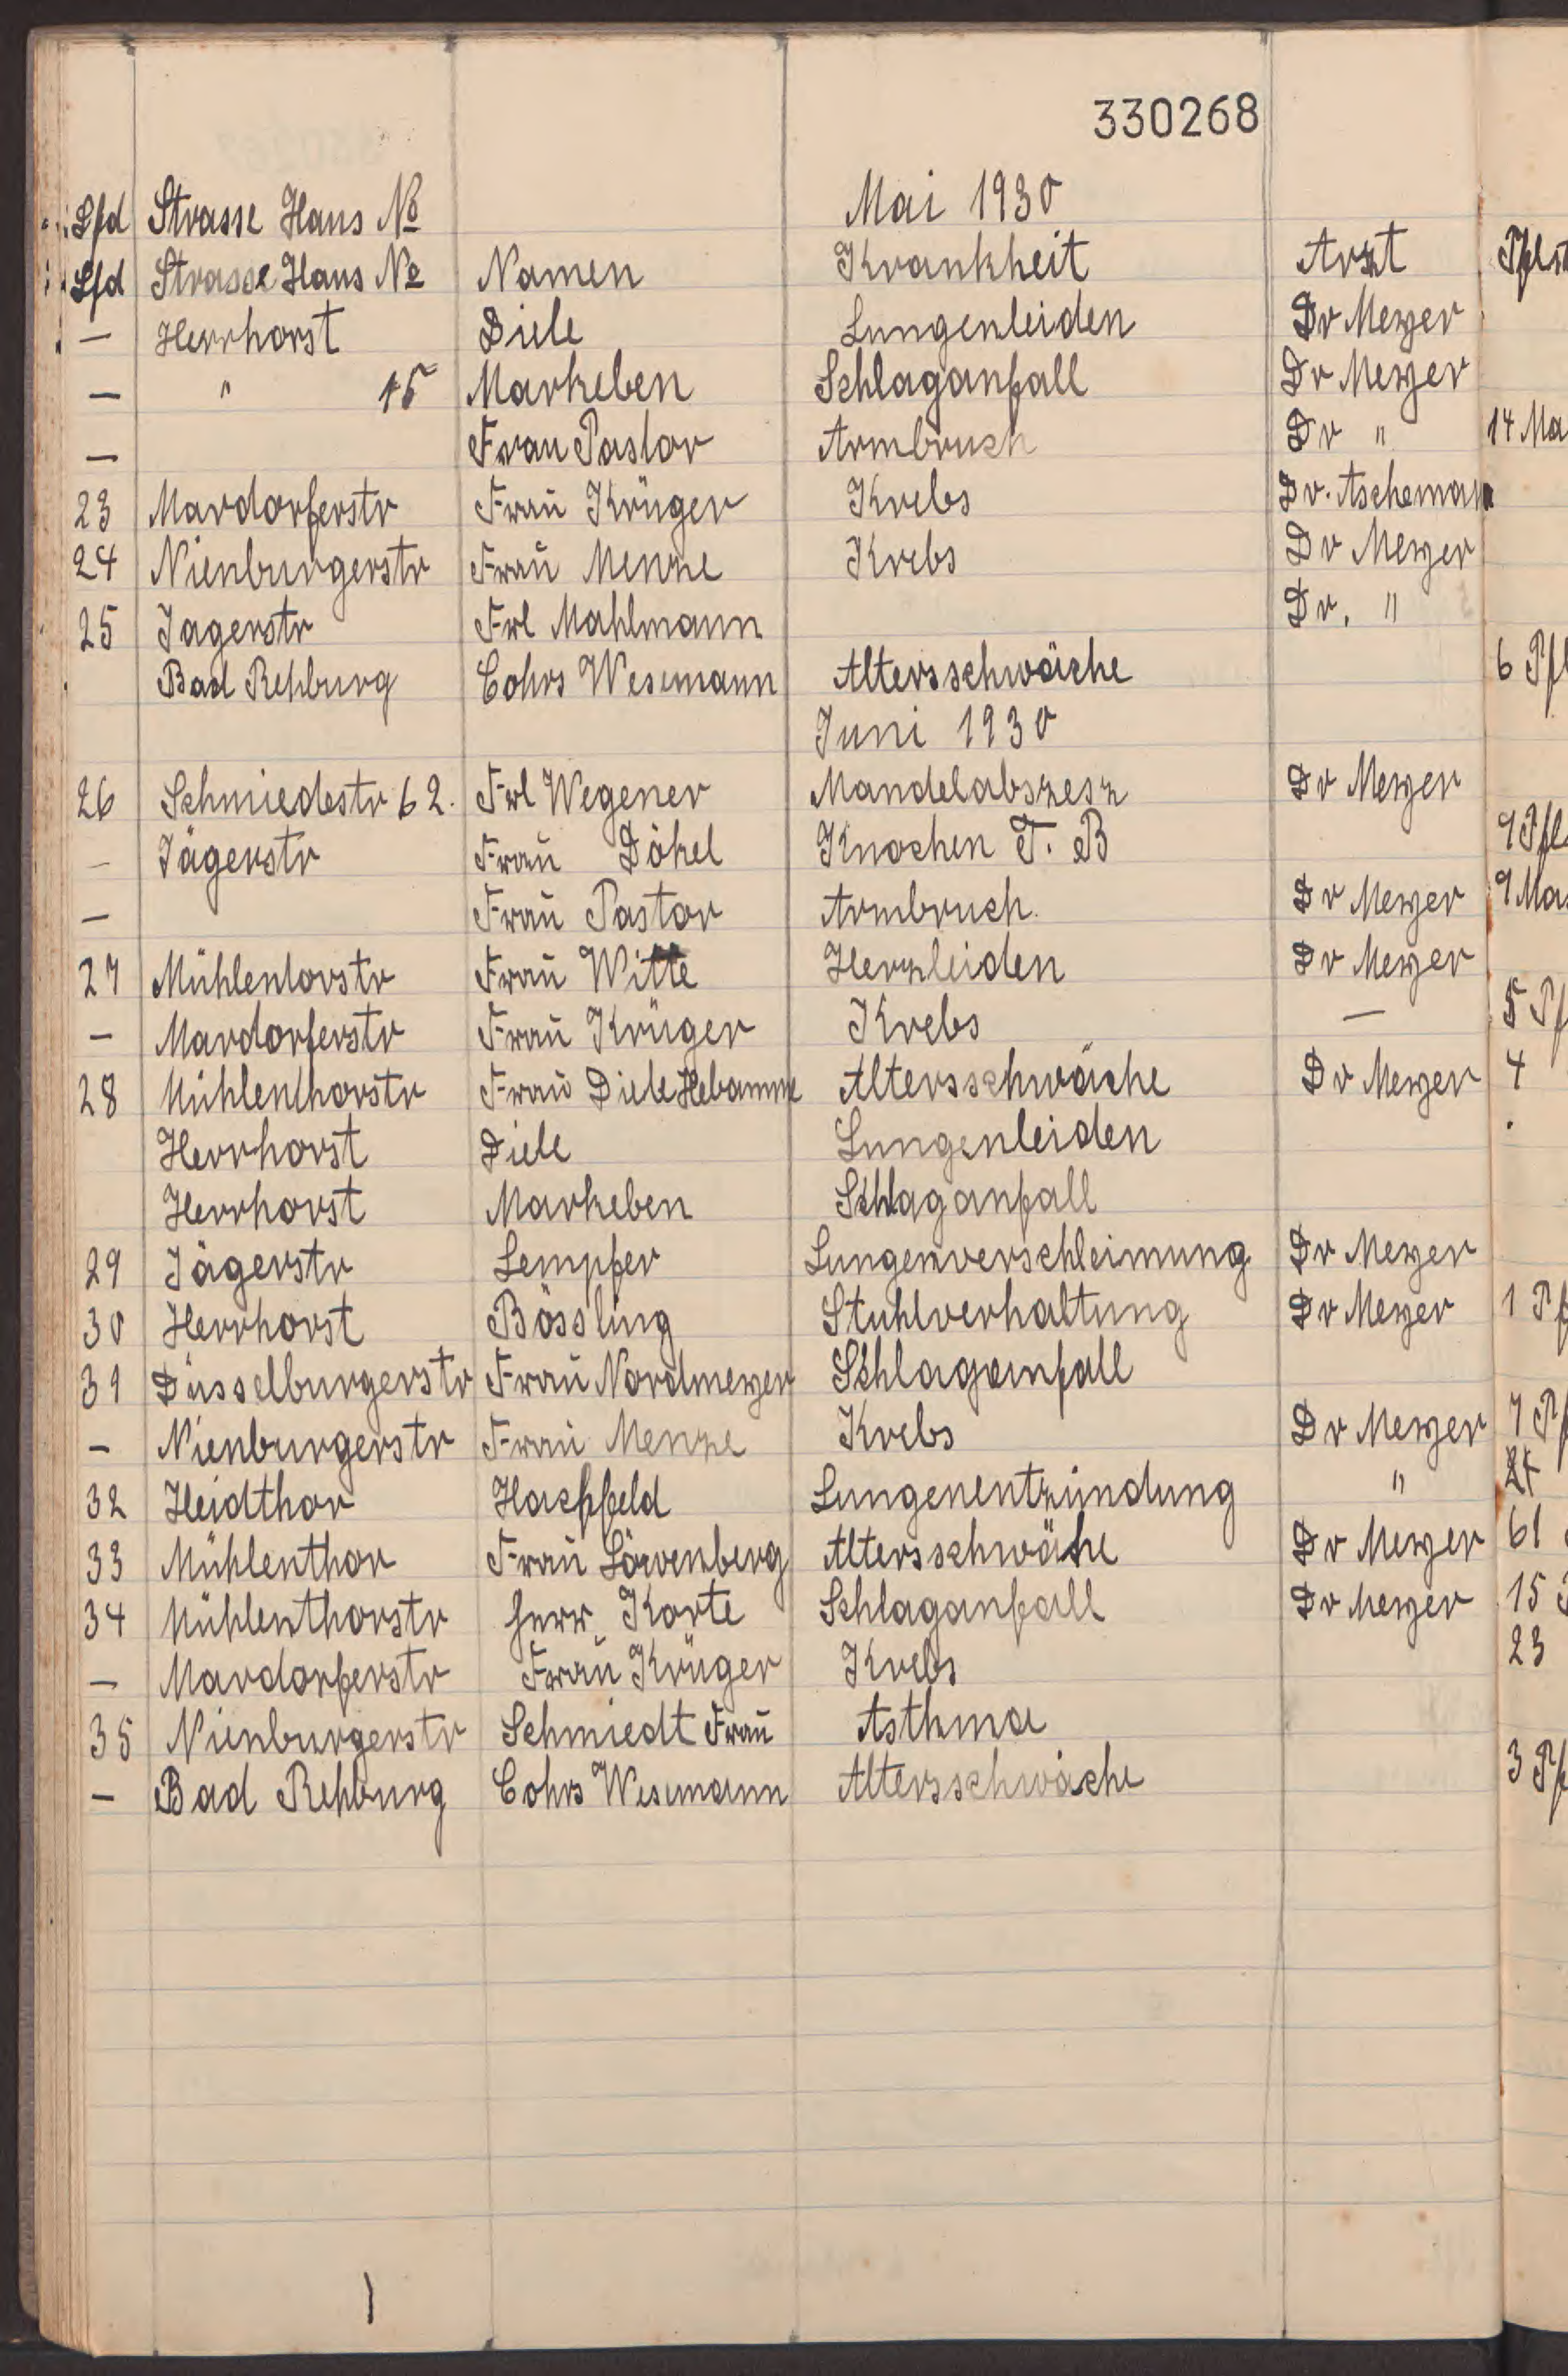 330268
Mai 1930
Lfd Strasse Haus No
Lfd Strasse Haus No Namen Krankheit Arzt
— Herrhorst Diele Lungenleiden Dr Meyer
— " 15 Markeben Schlaganfall Dr Meyer
— Frau Pastor Armbruch Dr " 14 Ma
23 Mardorferstr Frau Krüger Krebs Dr. Ascheman
24 Nienburgerstr Frau Menze Krebs Dr Meyer
25 Jagerstr Frl Mahlmann Dr. "
Bad Rehburg Cohrs Wesemann Altersschwäche 6 Pfl
Juni 1930
26 Schmiedestr 62. Frl Wegener Mandelabszesz Dr Meyer
— Jägerstr Frau Dökel Knochen T. B 9 Pfl
— Frau Pastor Armbruch. Dr Meyer 9 Ma
27 Mühlentorstr Frau Witte Herzleiden Dr Meyer
— Mardorferstr Frau Krüger Krebs — 5 Pf
28 Mühlenthorstr Frau Diele Hebamme Altersschwäche Dr Meyer 4
Herrhorst Diele Lungenleiden
Herrhorst Markeben Schlaganfall
29 Jägerstr Lempfer Lungenverschleimung Dr Meyer
30 Herrhorst Bössling Stuhlverhaltung Dr Meyer 1 Pf
31 Düsselburgerstr Frau Nordmeyer Schlaganfall
— Nienburgerstr Frau Menze Krebs Dr Meyer 7 Pf
32 Heidthor Hachfeld Lungenentzündung "
33 Mühlenthor Frau Löwenberg Altersschwähe Dr Meyer 61
34 Mühlenthorstr Herr Korte Schlaganfall Dr Meyer 15
— Mardorferstr Frau Krüger Krebs 23
35 Nienburgerstr Schmiedt Frau Asthma
— Bad Rehburg Cohrs Wesemann Altersschwäche 3 Pf